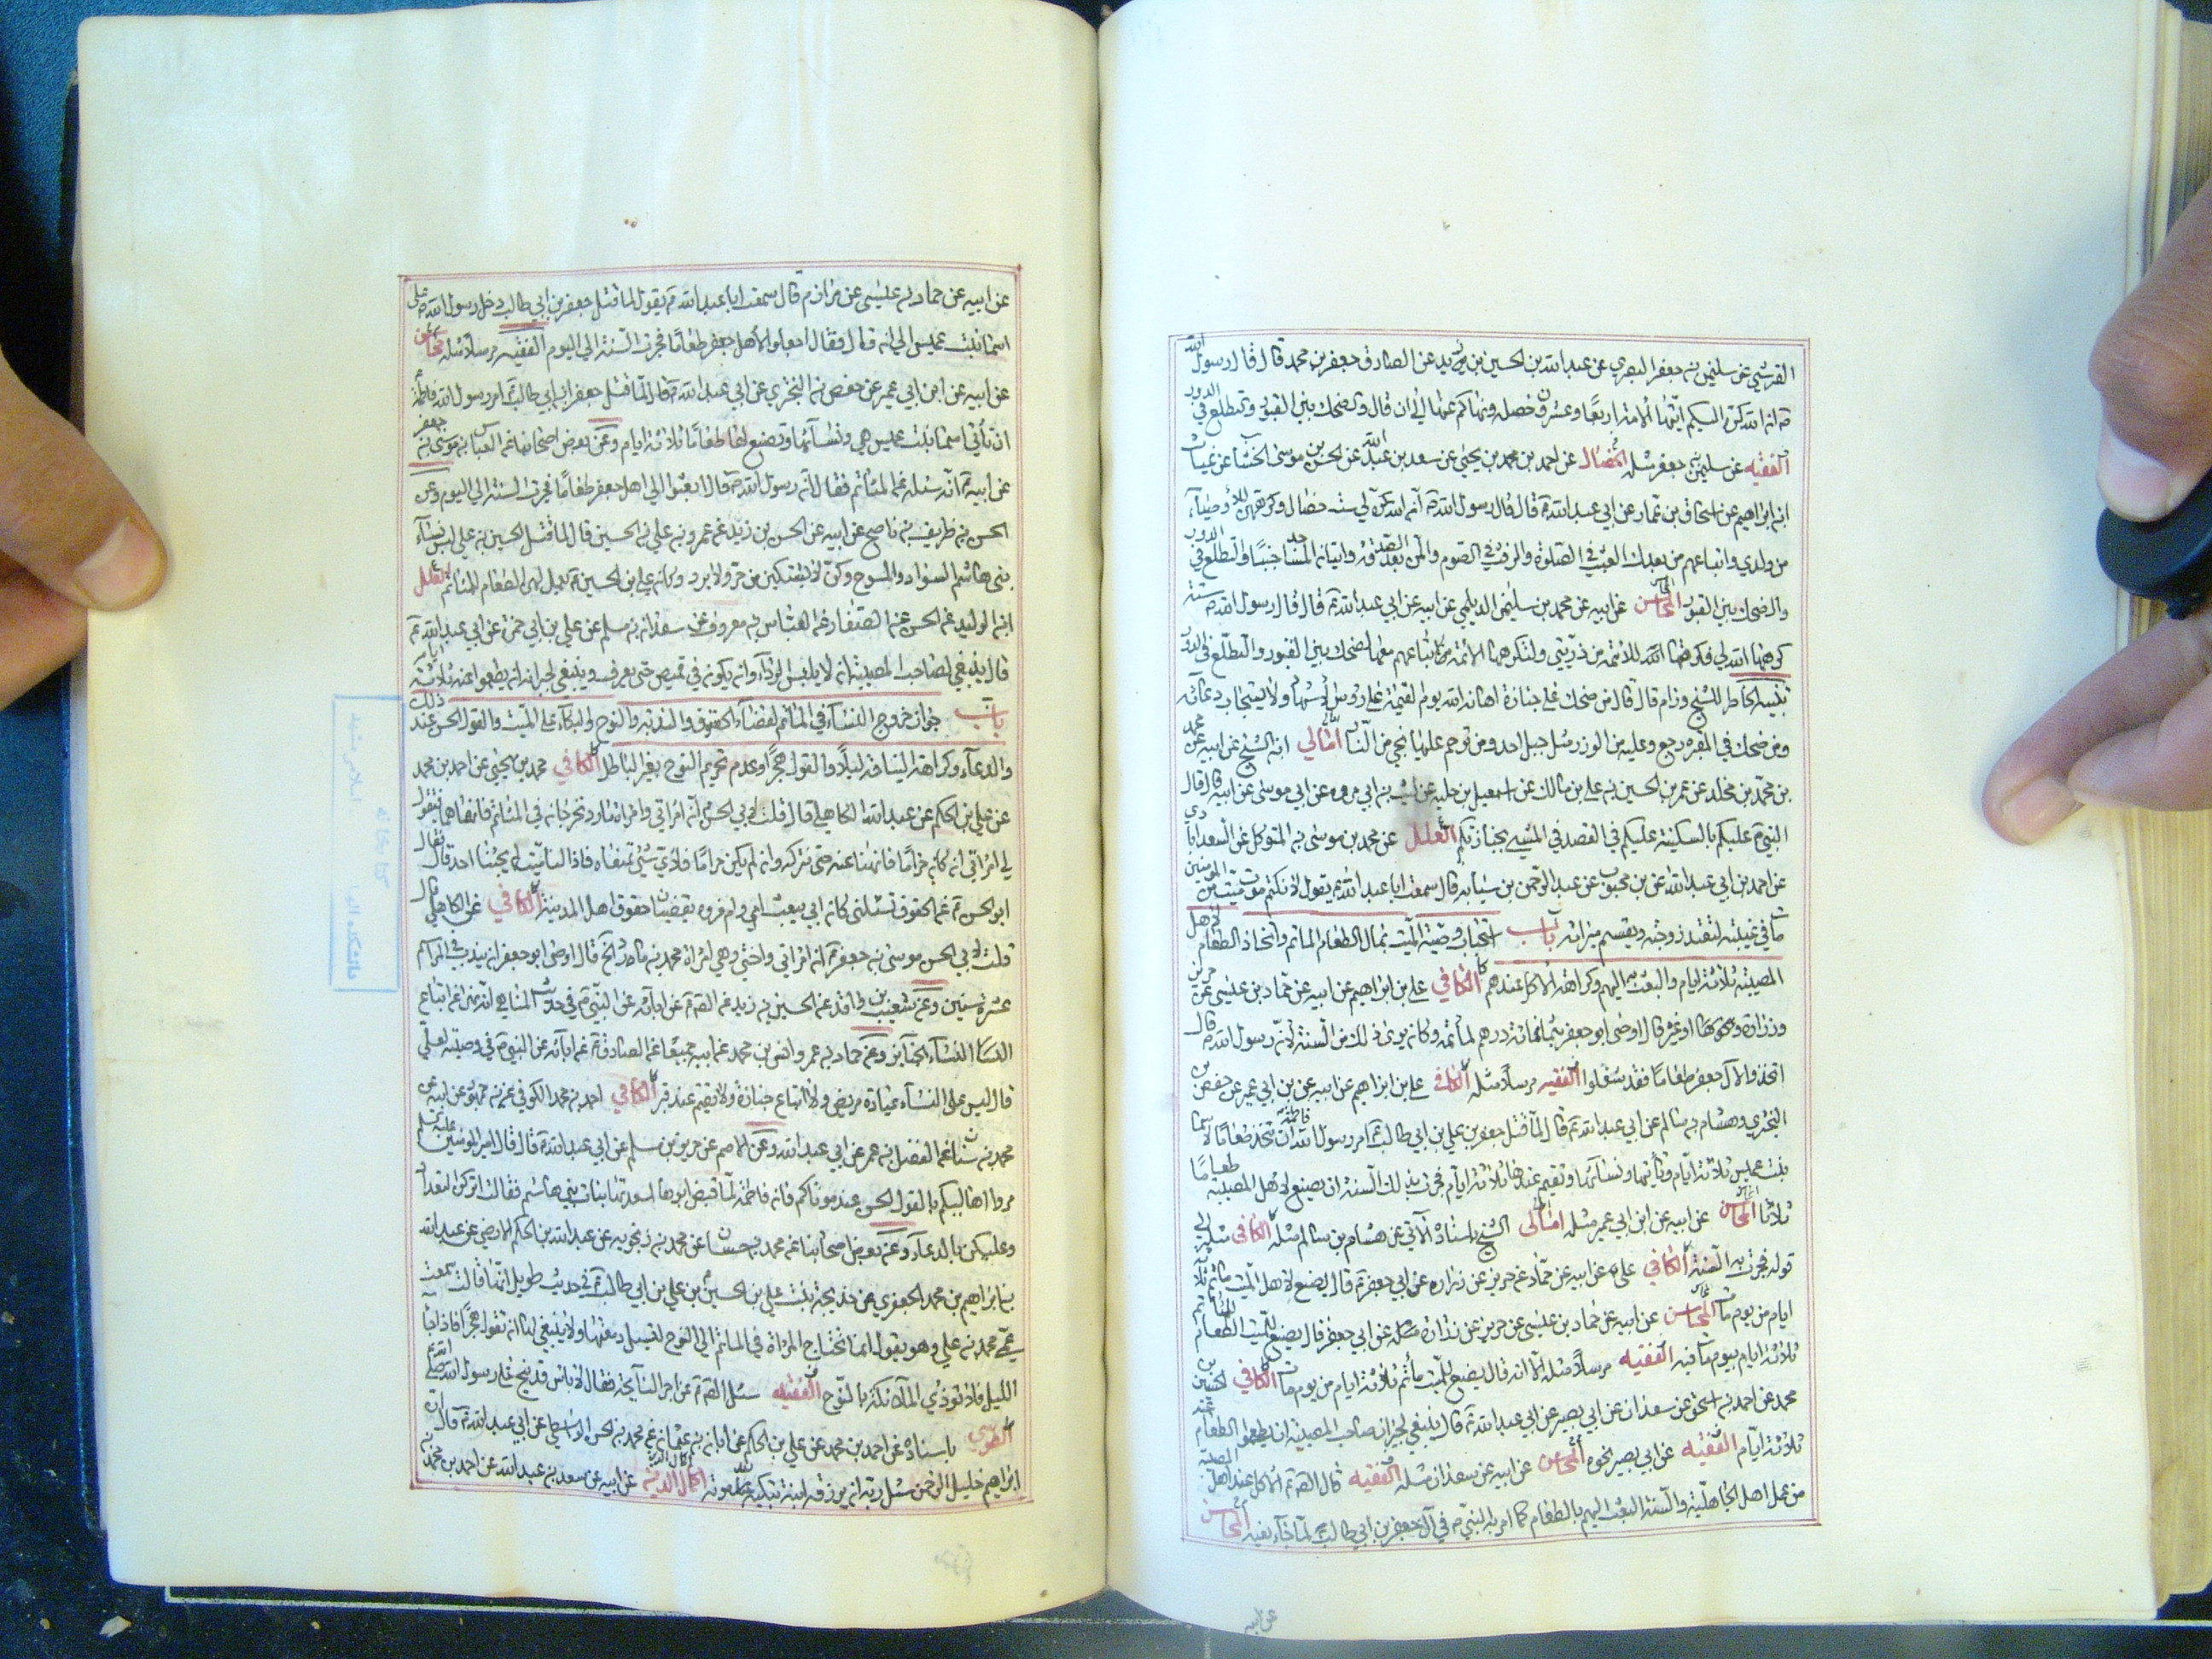 القرشي عن سليمن بن جعفر البصري عن عبدالله بن الحسين بن زيد عن الصادق جعفر بن محمد قال قال رسول الله
ص ان الله كره اليكم ايتها الامة اربعا وعشرون خصلة ونهاكم عنها الى ان قال والضحك بين القبور والتطلع في الدور
الفقيه عن سليمن بن جعفر مثله الخصال عن احمد بن محمد بن يحيى عن سعد بن عبدالله عن الحسن بن موسى الخشاب عن غياث
ابن ابراهيم عن اسحاق بن عمار عن ابي عبدالله ع قال قال رسول الله ص ان الله كره لي ست خصال وكرهتهن للاوصياء
من ولدي واتباعهم من بعدي العبث في الصلوة والرفث في الصوم والمن بعد الصدقة واتيان المساجد جنبا والتطلع في الدور
والضحك بين القبور المحاسن عن ابيه عن محمد بن سليمن الديلمي عن ابيه عن ابي عبدالله ع قال قال رسول الله ص ستة
كرهها الله لي فكرهتها للائمة من ذريتي ولتكرهها الائمة لاتباعهم منها الضحك بين القبور والتطلع في الدور
تنبيه الخاطر للشيخ ورام قال قال من ضحك على جنازة اهانه الله يوم القيمة على رؤس الاشهاد ولا يستجاب دعائه
ومن ضحك في المقبرة رجع وعليه من الوزر مثل جبل احد ومن ترحم عليها نجي من النار امالي ابن الشيخ عن ابيه عن محمد
بن محمد بن مخلد عن عمر بن الحسين بن علي بن مالك عن اسمعيل بن علية عن ليث بن ابي بردة عن ابي موسى عن ابيه قال قال
النبي ص عليكم بالسكينة عليكم في القصد في المشي بجنازتكم العلل عن محمد بن موسى بن المتوكل عن السعدابادي
عن احمد بن ابي عبدالله عن بن محبوب عن عبد الرحمن بن سيابه قال سمعت ابا عبدالله ع يقول لا تكتموا موت ميت من المؤمنين
مات في غيبته لتعتد زوجته ويقسم ميراثه باب استحباب وصية الميت بمال لطعام الماتم واتخاذ الطعام لاهل
المصيبة ثلاثة ايام والبعث به اليهم وكراهة الاكل عندهم الكافي علي بن ابراهيم عن ابيه عن حماد بن عيسى عن حريز
وزرارة او غيره قال اوصى ابو جعفر بثمانمائة درهم لماتمه وكان يرى ذلك من السنة لان رسول الله ص قال
اتخذوا لآل جعفر طعاما فقد شغلوا الفقيه مرسلا مثله الكافي علي بن ابراهيم عن ابيه عن بن ابي عمير عن حفص بن
البختري وهشام بن سالم عن ابي عبدالله ع قال لما قتل جعفر بن ابي طالب ع امر رسول الله فاطمة ان تتخذ طعاما لاسما
بنت عميس ثلاثة ايام وتأتيها ونسائها وتقيم عندها ثلاثة ايام فجرت بذلك السنة ان يصنع لاهل المصيبة طعاما
ثلاثا المحاسن عن ابيه عن ابن ابي عمير مثله امالي الشيخ باسناده الآتي عن هشام بن سالم مثله الكافي مثله الى
قوله فجرت به السنة الكافي علي عن ابيه عن حماد عن حريز عن زراره عن ابي جعفر ع قال يصنع لاهل الميت ماتم ثلاثة
ايام من يوم مات المحاسن عن ابيه عن حماد بن عيسى عن حريز عن زرارة مثله عن ابي جعفر قال يصنع للميت الطعام للماتم
ثلاثة ايام بيوم مات فيه الفقيه مرسلا مثله الا انه قال يصنع للميت مأتم ثلاثة ايام من يوم مات الكافي الحسين بن
محمد عن احمد بن اسحق عن سعدان عن ابي بصير عن ابي عبدالله ع قال ينبغي لجيران صاحب المصيبة ان يطعموا الطعام عنه
ثلاثة ايام الفقيه عن ابي بصير نحوه المحاسن عن ابيه عن سعدان مثله الفقيه قال الصادق ع الاكل عند اهل المصيبة
من عمل اهل الجاهلية والسنة البعث اليهم بالطعام كما امر به النبي ص في آل جعفر بن ابي طالب لما جاء نعيه المحاسن
عن ابيه
عن ابيه عن حماد بن عيسى عن مرازم قال سمعت ابا عبدالله ع يقول لما قتل جعفر بن ابي طالب دخل رسول الله ص على
اسماء بنت عميس الى انه قال فقال اجعلوا لاهل جعفر طعاما فجرت السنة الى اليوم الفقيه مرسلا مثله محاسن
عن ابيه عن ابن ابي عمير عن حفص بن البختري عن ابي عبدالله ع قال لما قتل جعفر ابن ابي طالب ع امر رسول الله فاطمة
ان تأتي اسماء بنت عميس هي ونسائها وتصنع لها طعاما ثلاثة ايام وعن بعض اصحابنا عن العباس بن موسى بن جعفر
عن ابيه ع انه سئله عن المأتم فقال ان رسول الله ص قال ابعثوا الى اهل جعفر طعاما فجرت السنة الى اليوم وعن
الحسن بن ظريف بن ناصح عن ابيه عن الحسن بن زيد عن عمرو بن علي بن الحسين قال لما قتل الحسين بن علي لبس نساء
بني هاشم السواد والمسوح وكن لا يشتكين من حر ولا برد وكان علي بن الحسين ع يعمل لهن الطعام للمأتم العلل
ابن الوليد عن الحسن عن الصفار عن العباس بن معروف عن سعدان بن مسلم عن علي بن ابي حمزة عن ابي عبدالله ع
قال ينبغي لصاحب المصيبة ان لا يلبس الرداء وانه يكون في قميص حتى يعرف وينبغي لجيرانه ان يطعموا عنه ثلاثة ايام
باب جواز خروج النساء في المأتم لقضاء الحقوق والندبة والنوح والبكاء على الميت والقول الحسن عند ذلك
والدعاء وكراهة النياحة ليلا والقول هجرا وعدم تحريم النوح بغير الباطل الكافي محمد بن يحيى عن احمد بن محمد
عن علي بن الحكم عن عبدالله الكاهلي قال قلت لابي الحسن ع ان امراتي وامراة مارد تخرجان في المأتم فانهاهما فتقول
لي امراتي ان كان حراما فانهنا عنه حتى نتركه وان لم يكن حراما فلاي شئ تمنعناه فاذا مات لنا ميت لم يجئنا احد قال فقال
ابو الحسن ع عن الحقوق تسئلني كان ابي يبعث امي وام فروة تقضيان حقوق اهل المدينة الكافي عن الكاهلي قال
قلت لابي الحسن موسى بن جعفر ع ان امراتي واختي وهي امراة محمد بن مارد الخ قال اوصى ابو جعفر ان يندب في المواسم
عشرة سنين وعن شعيب بن واقد عن الحسين بن زيد عن الصادق ع عن ابائه عن النبي ص في حديث المناهي انه نهى عن اتباع
النساء الجنائز وعن حماد بن عمر وانس بن محمد عن ابيه جميعا عن الصادق ع عن ابائه عن النبي ص في وصيته لعلي
قال ليس على النساء عيادة مريض ولا اتباع جنازة ولا تقيم عند قبر الكافي احمد بن محمد الكوفي عن بن جمهور عن ابيه عن
محمد بن سنان عن المفضل بن عمر عن ابي عبدالله وعن الاصم عن حريز بن مسلم عن ابي عبدالله ع قال قال امير المؤمنين عليه السلم
مروا اهاليكم بالقول الحسن عند موتاكم فان فاطمة لما قبض ابوها اسعدتها بنات بني هاشم فقالت اتركن التعداد
وعليكن بالدعاء وعن بعض اصحابنا عن محمد بن حسان عن محمد بن زنجويه عن عبدالله بن الحكم الارمني عن عبدالله
بن ابراهيم بن محمد الجعفري عن خديجة بنت علي بن الحسين بن علي بن ابي طالب ع في حديث طويل انها قالت سمعت
عمي محمد بن علي وهو يقول انما تحتاج المراة في الماتم الى النوح لتسيل دمعتها ولا ينبغي لها ان تقول هجرا فاذا جاء
الليل فلا توذي الملائكة بالنوح الفقيه سئل الصادق ع عن اجر النائحة فقال لا باس قد نيح على رسول الله صلى الله
الطوسي باسناده عن احمد بن محمد عن علي بن الحكم عن ابان بن عثمان عن محمد بن الحسن الواسطي عن ابي عبدالله ع قال ان
ابراهيم خليل الرحمن سئل ربه ان يرزقه ابنة تبكيه بعد موته اكمال الدين عن ابيه عن سعد بن عبدالله عن احمد بن محمد بن